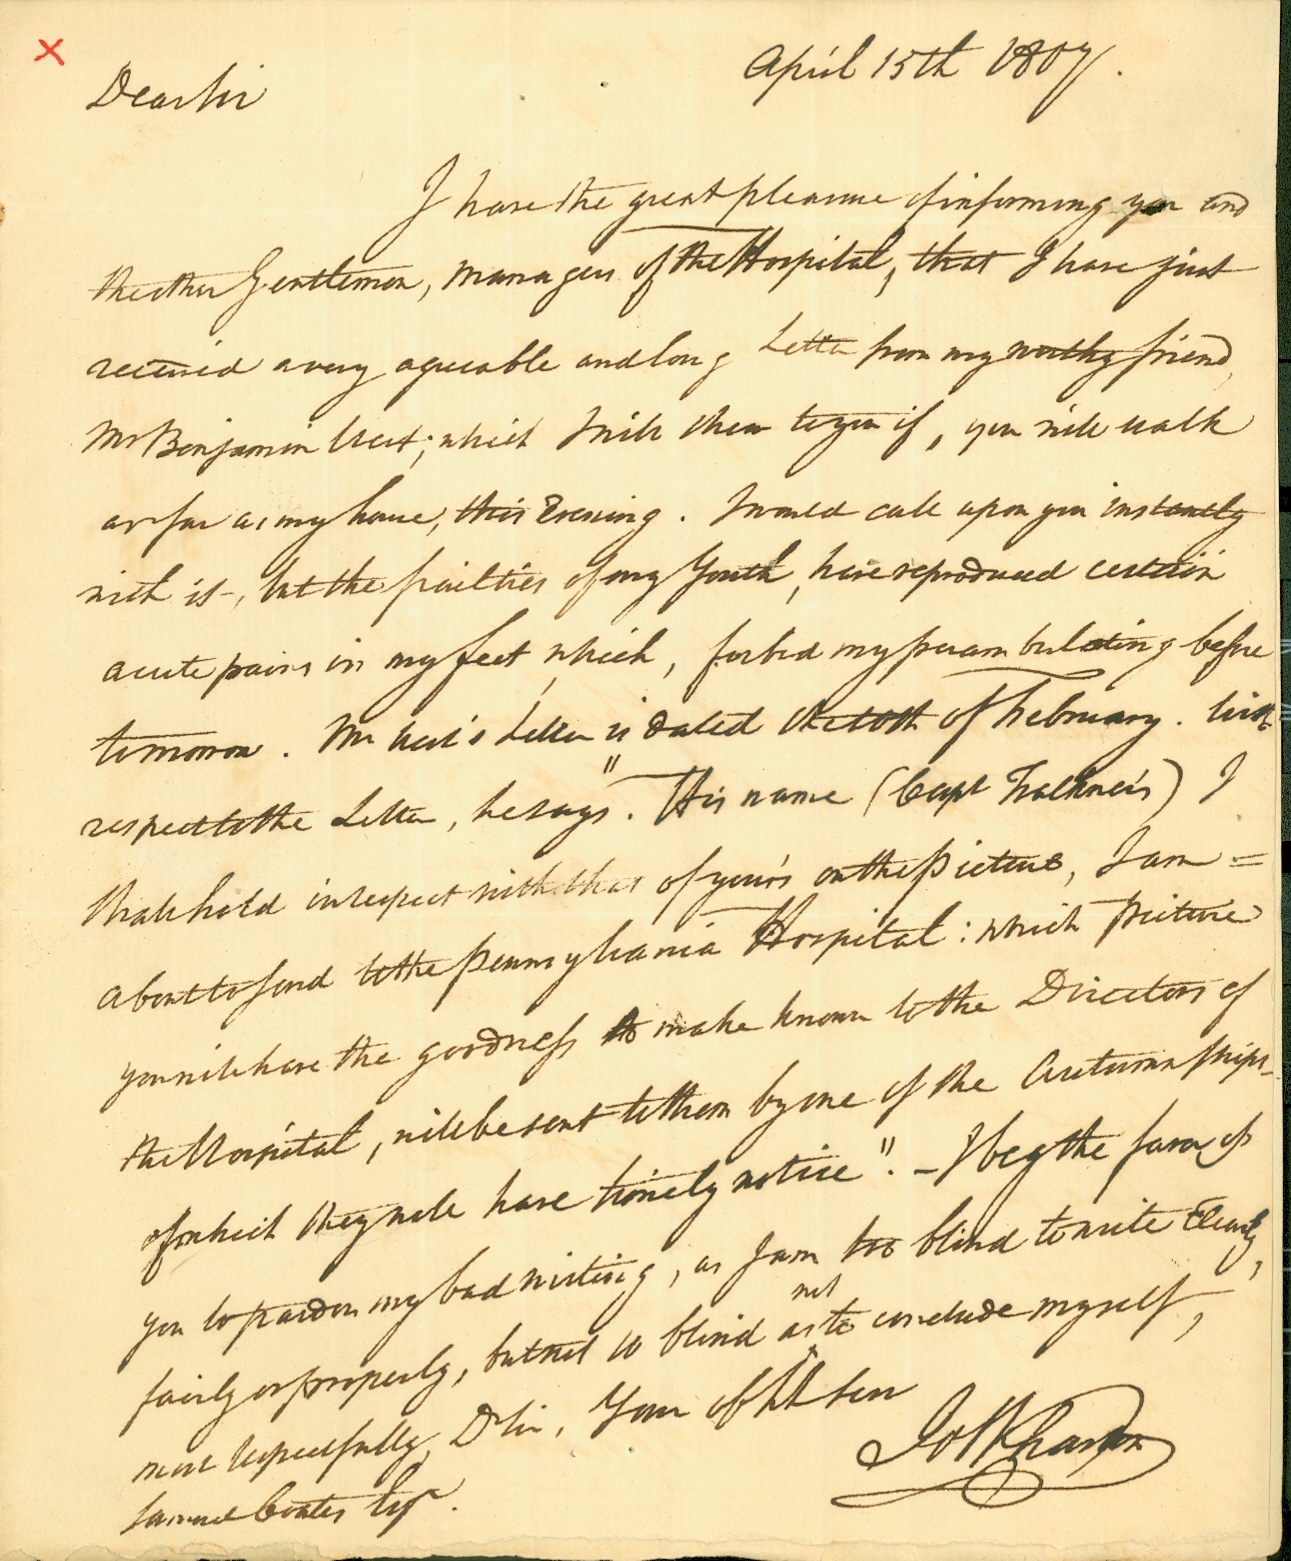 April 15th 1807.
Dear Sir
I have the great pleasure of informing you and
the other Gentlemen, Managers of the Hospital, that I have just
received a very agreeable and long Letter from my worthy friend,
Mr Benjamin West; which I will shew to you if, you will walk
as far as my house, this Evening. I would call upon you instantly
with it, but the frailties of my Youth, have reproduced certain
acute pains in my feet, which, forbid my perambulating before
tomorrow. Mr West's Letter is dated the 10th of February. With
respect to the Letter, he says. "His name (Capt Falkner's) I
shall hold in respect with that of your's on the picture, I am =
about to send to the Pennsylvania Hospital: which Picture
you will have the goodness to make known to the Directors of
the Hospital, will be sent to them by one of the Autumn ships
of which they will have timely notice". - I beg the favor of
you to pardon my bad writing, as I am too blind to write Clearly,
fairly or properly, but not so blind as not to conclude myself,
most respectfully, D Sir, Your obt hl serv
Jos Wharton
Samuel Coates Esqr.